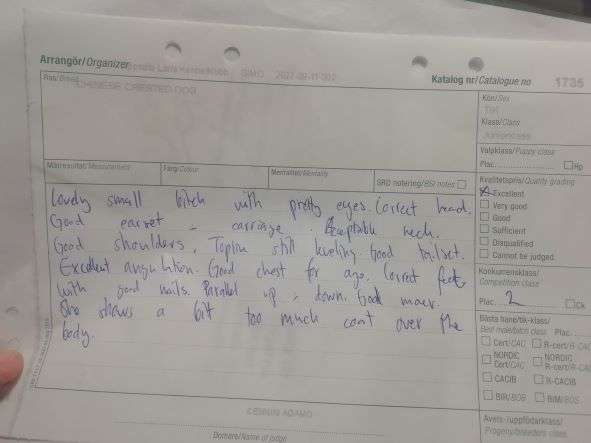 Arrangör/Organizer
Katalog nr/Catalogue no. 1735
Ras/Breed
CHINESE CRESTED DOG
Kön/Sex
TIK
Klass/Class
Juniorklass
Valpklass/Puppy class
Plac. Hp
Mätresultat/Measurement Färg/Colour Mentalitet/Mentality SRD notering/BSI notes
Kvalitetspris/Quality grading
Excellent
Very good
Good
Sufficient
Disqualified
Cannot be judged
Konkurrensklass/
Competition class
Plac. 2 Ck
Bästa hane/tik-klass/
Best male/bitch class Plac.
Cert/CAC R-cert/R-CAC
NORDIC Cert/CAC NORDIC R-cert/R-CAC
CACIB R-CACIB
BIR/BOB BIM/BOS
Avels-/uppfödarklass/
Progeny/breeders class
Lovely small bitch with pretty eyes. Correct head.
Good earset - carriage. Acceptable neck.
Good shoulders. Topline still leveling. Good tailset.
Excellent angulation. Good chest for age. Correct feet,
with good nails. Parallel up & down. Good mover.
She shows a bit too much coat over the
body.
Domare/Name of judge